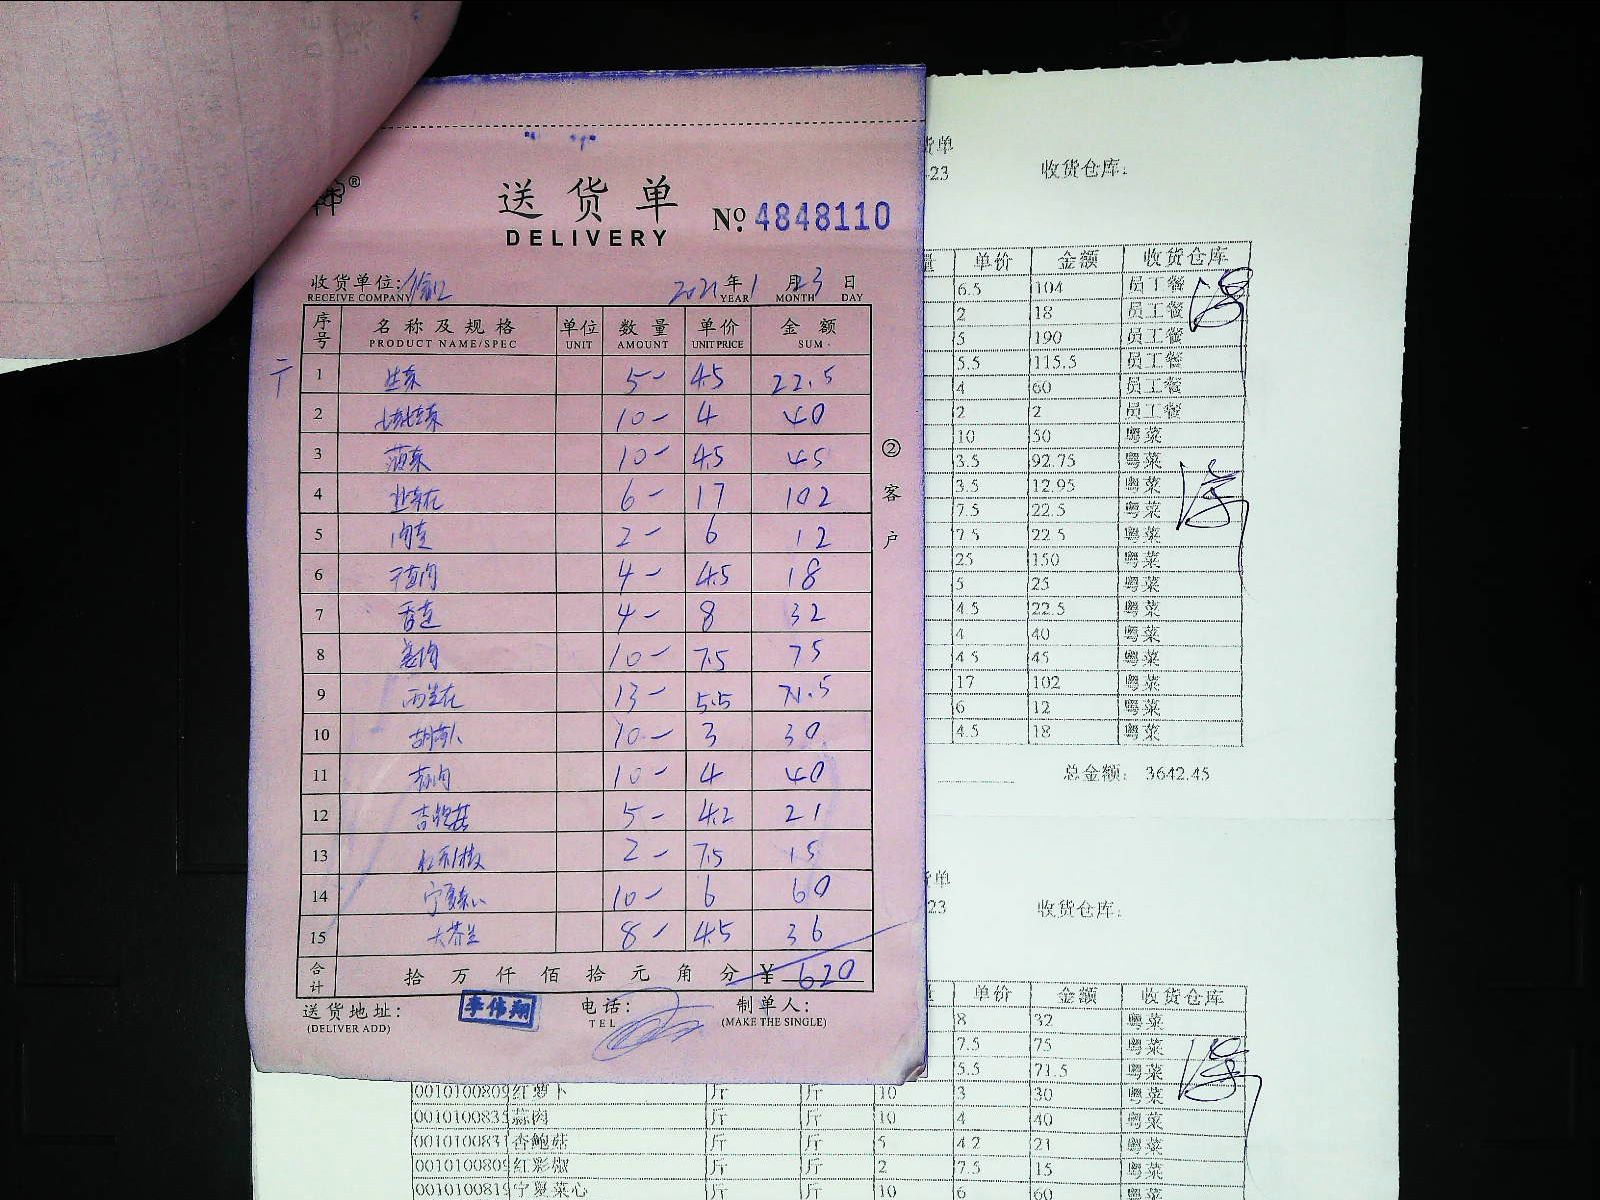 送货单
DELIVERY
No. 4848110
收货单位:
RECEIVE COMPANY
2021年1月23日
YEAR MONTH DAY
序号 名称及规格 单位 数量 单价 金额
PRODUCT NAME/SPEC UNIT AMOUNT UNIT PRICE SUM
1 生菜 5- 4.5 22.5
2 10- 4 40
3 10- 4.5 45
4 6- 17 102
5 2- 6 12
6 4- 4.5 18
7 4- 8 32
8 10- 7.5 75
9 西兰花 13- 5.5 71.5
10 胡萝卜 10- 3 30
11 蒜肉 10- 4 40
12 杏鲍菇 5- 4.2 21
13 红彩椒 2- 7.5 15
14 宁夏菜心 10- 6 60
15 大芥兰 8- 4.5 36
合计 拾万仟佰拾元角分 ¥ 620
送货地址:
(DELIVER ADD)
李伟翔
电话:
TEL
制单人:
(MAKE THE SINGLE)
②客户
货单
23 收货仓库:
量 单价 金额 收货仓库
6.5 104 员工餐
2 18 员工餐
5 190 员工餐
5.5 115.5 员工餐
4 60 员工餐
2 2 员工餐
10 50 粤菜
3.5 92.75 粤菜
3.5 12.95 粤菜
7.5 22.5 粤菜
7.5 22.5 粤菜
25 150 粤菜
5 25 粤菜
4.5 22.5 粤菜
4 40 粤菜
4.5 45 粤菜
17 102 粤菜
6 12 粤菜
4.5 18 粤菜
总金额: 3642.45
货单
23 收货仓库:
量 单价 金额 收货仓库
8 32 粤菜
7.5 75 粤菜
5.5 71.5 粤菜
001010080 红萝卜 斤 斤 10 3 30 粤菜
001010083 蒜肉 斤 斤 10 4 40 粤菜
001010083 杏鲍菇 斤 斤 5 4.2 21 粤菜
001010080 红彩椒 斤 斤 2 7.5 15 粤菜
001010081 宁夏菜心 斤 斤 10 6 60 粤菜